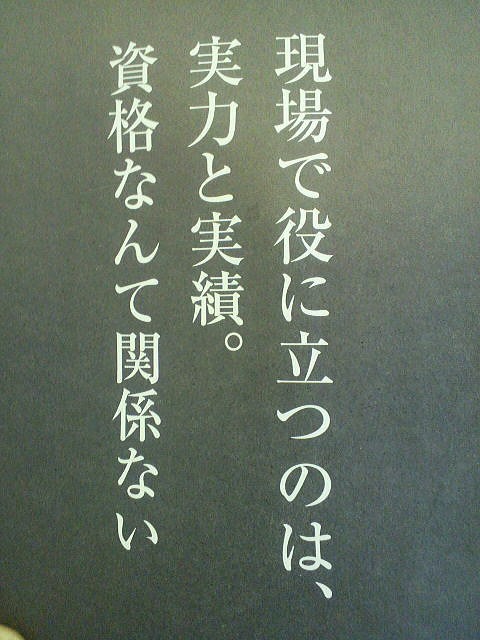 現場で役に立つのは、
実力と実績。
資格なんて関係ない